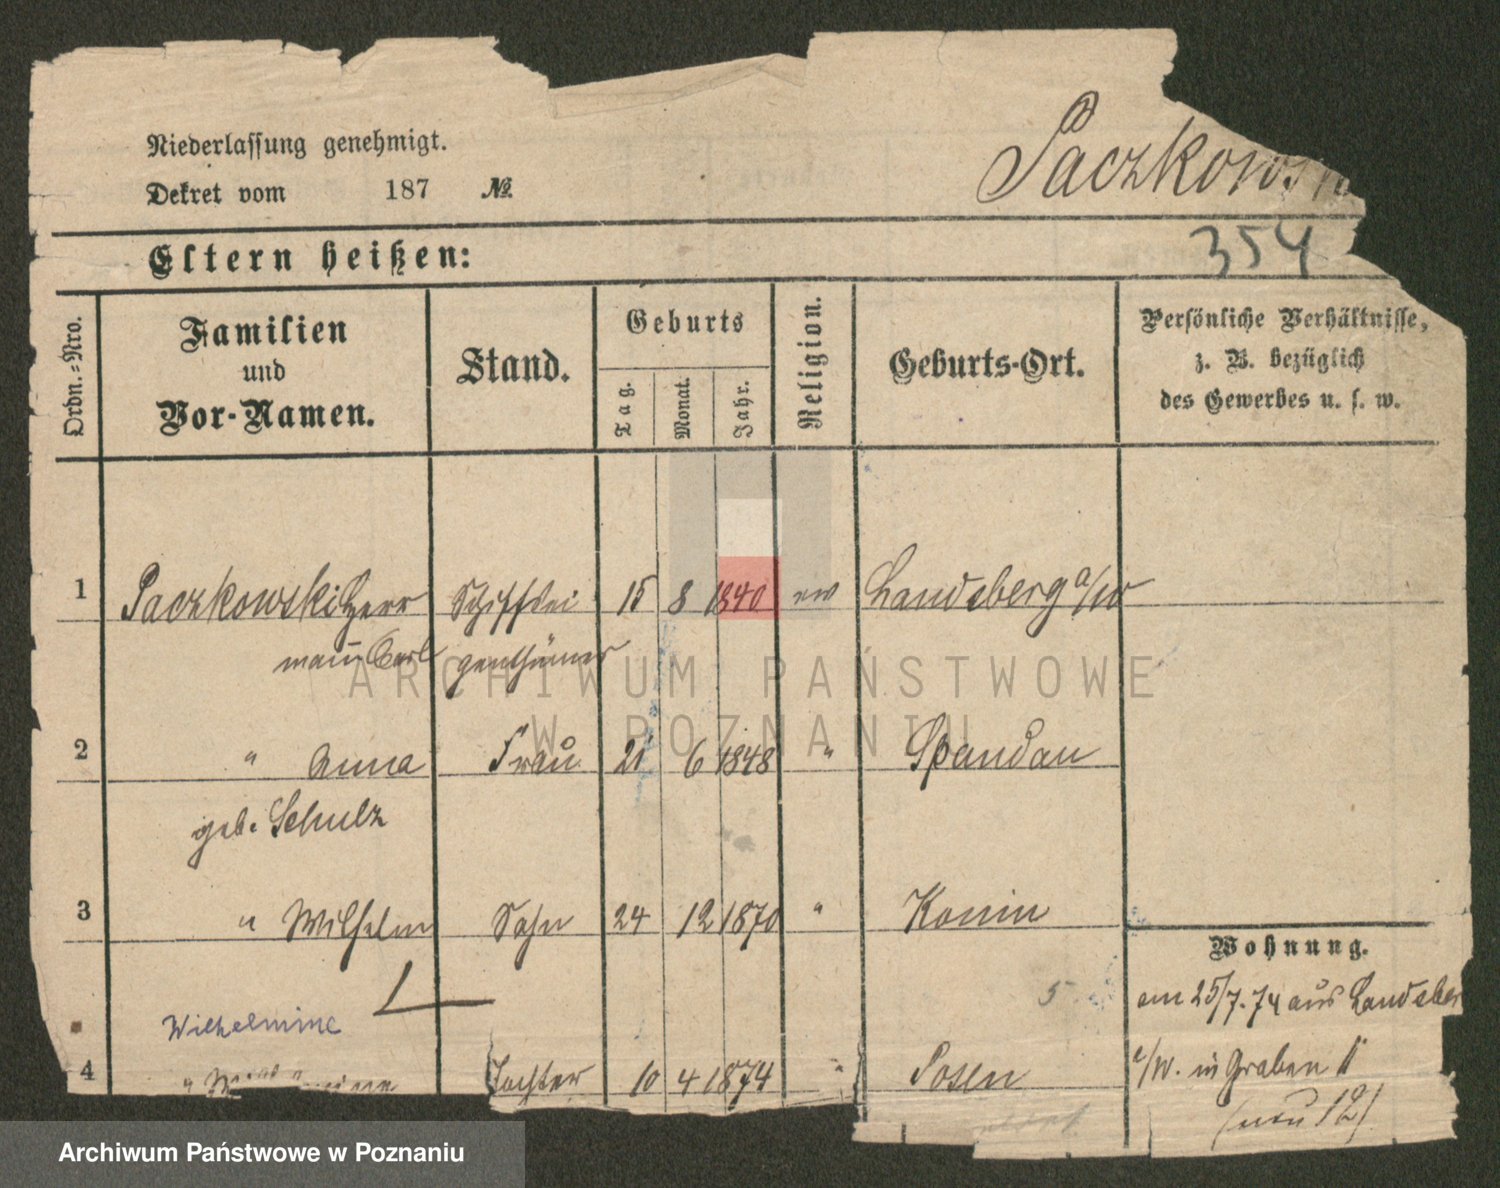 Niederlassung genehmigt.
Dekret vom 187 №
Paczkowski
Eltern heißen:
354
Ordn.-Nro.
Familien
und
Vor-Namen.
Stand.
Geburts
Tag.
Monat.
Jahr.
Religion.
Geburts-Ort.
Persönliche Verhältnisse,
z. B. bezüglich
des Gewerbes u. s. w.
1 Paczkowski Herr Schiffsei 15 8 1840 ev Landsberg a/W
mann Carl genthümer
2 " Anna Frau 21 6 1848 " Spandau
geb. Schulz
3 " Wilhelm Sohn 24 12 1870 " Konin
Wohnung.
5
am 25/7.74 aus Landsber
Wilhelmine
a/W. in Graben 11
4 " Tochter 10 4 1874 " Posen
(neu 12)
ARCHIWUM PAŃSTWOWE
W POZNANIU
Archiwum Państwowe w Poznaniu